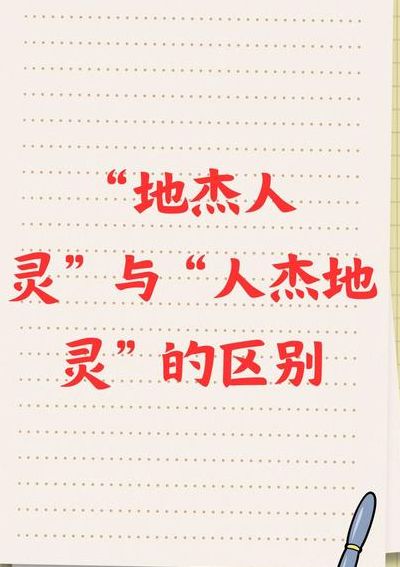 “地杰人
灵”与“人杰地
灵”的区别